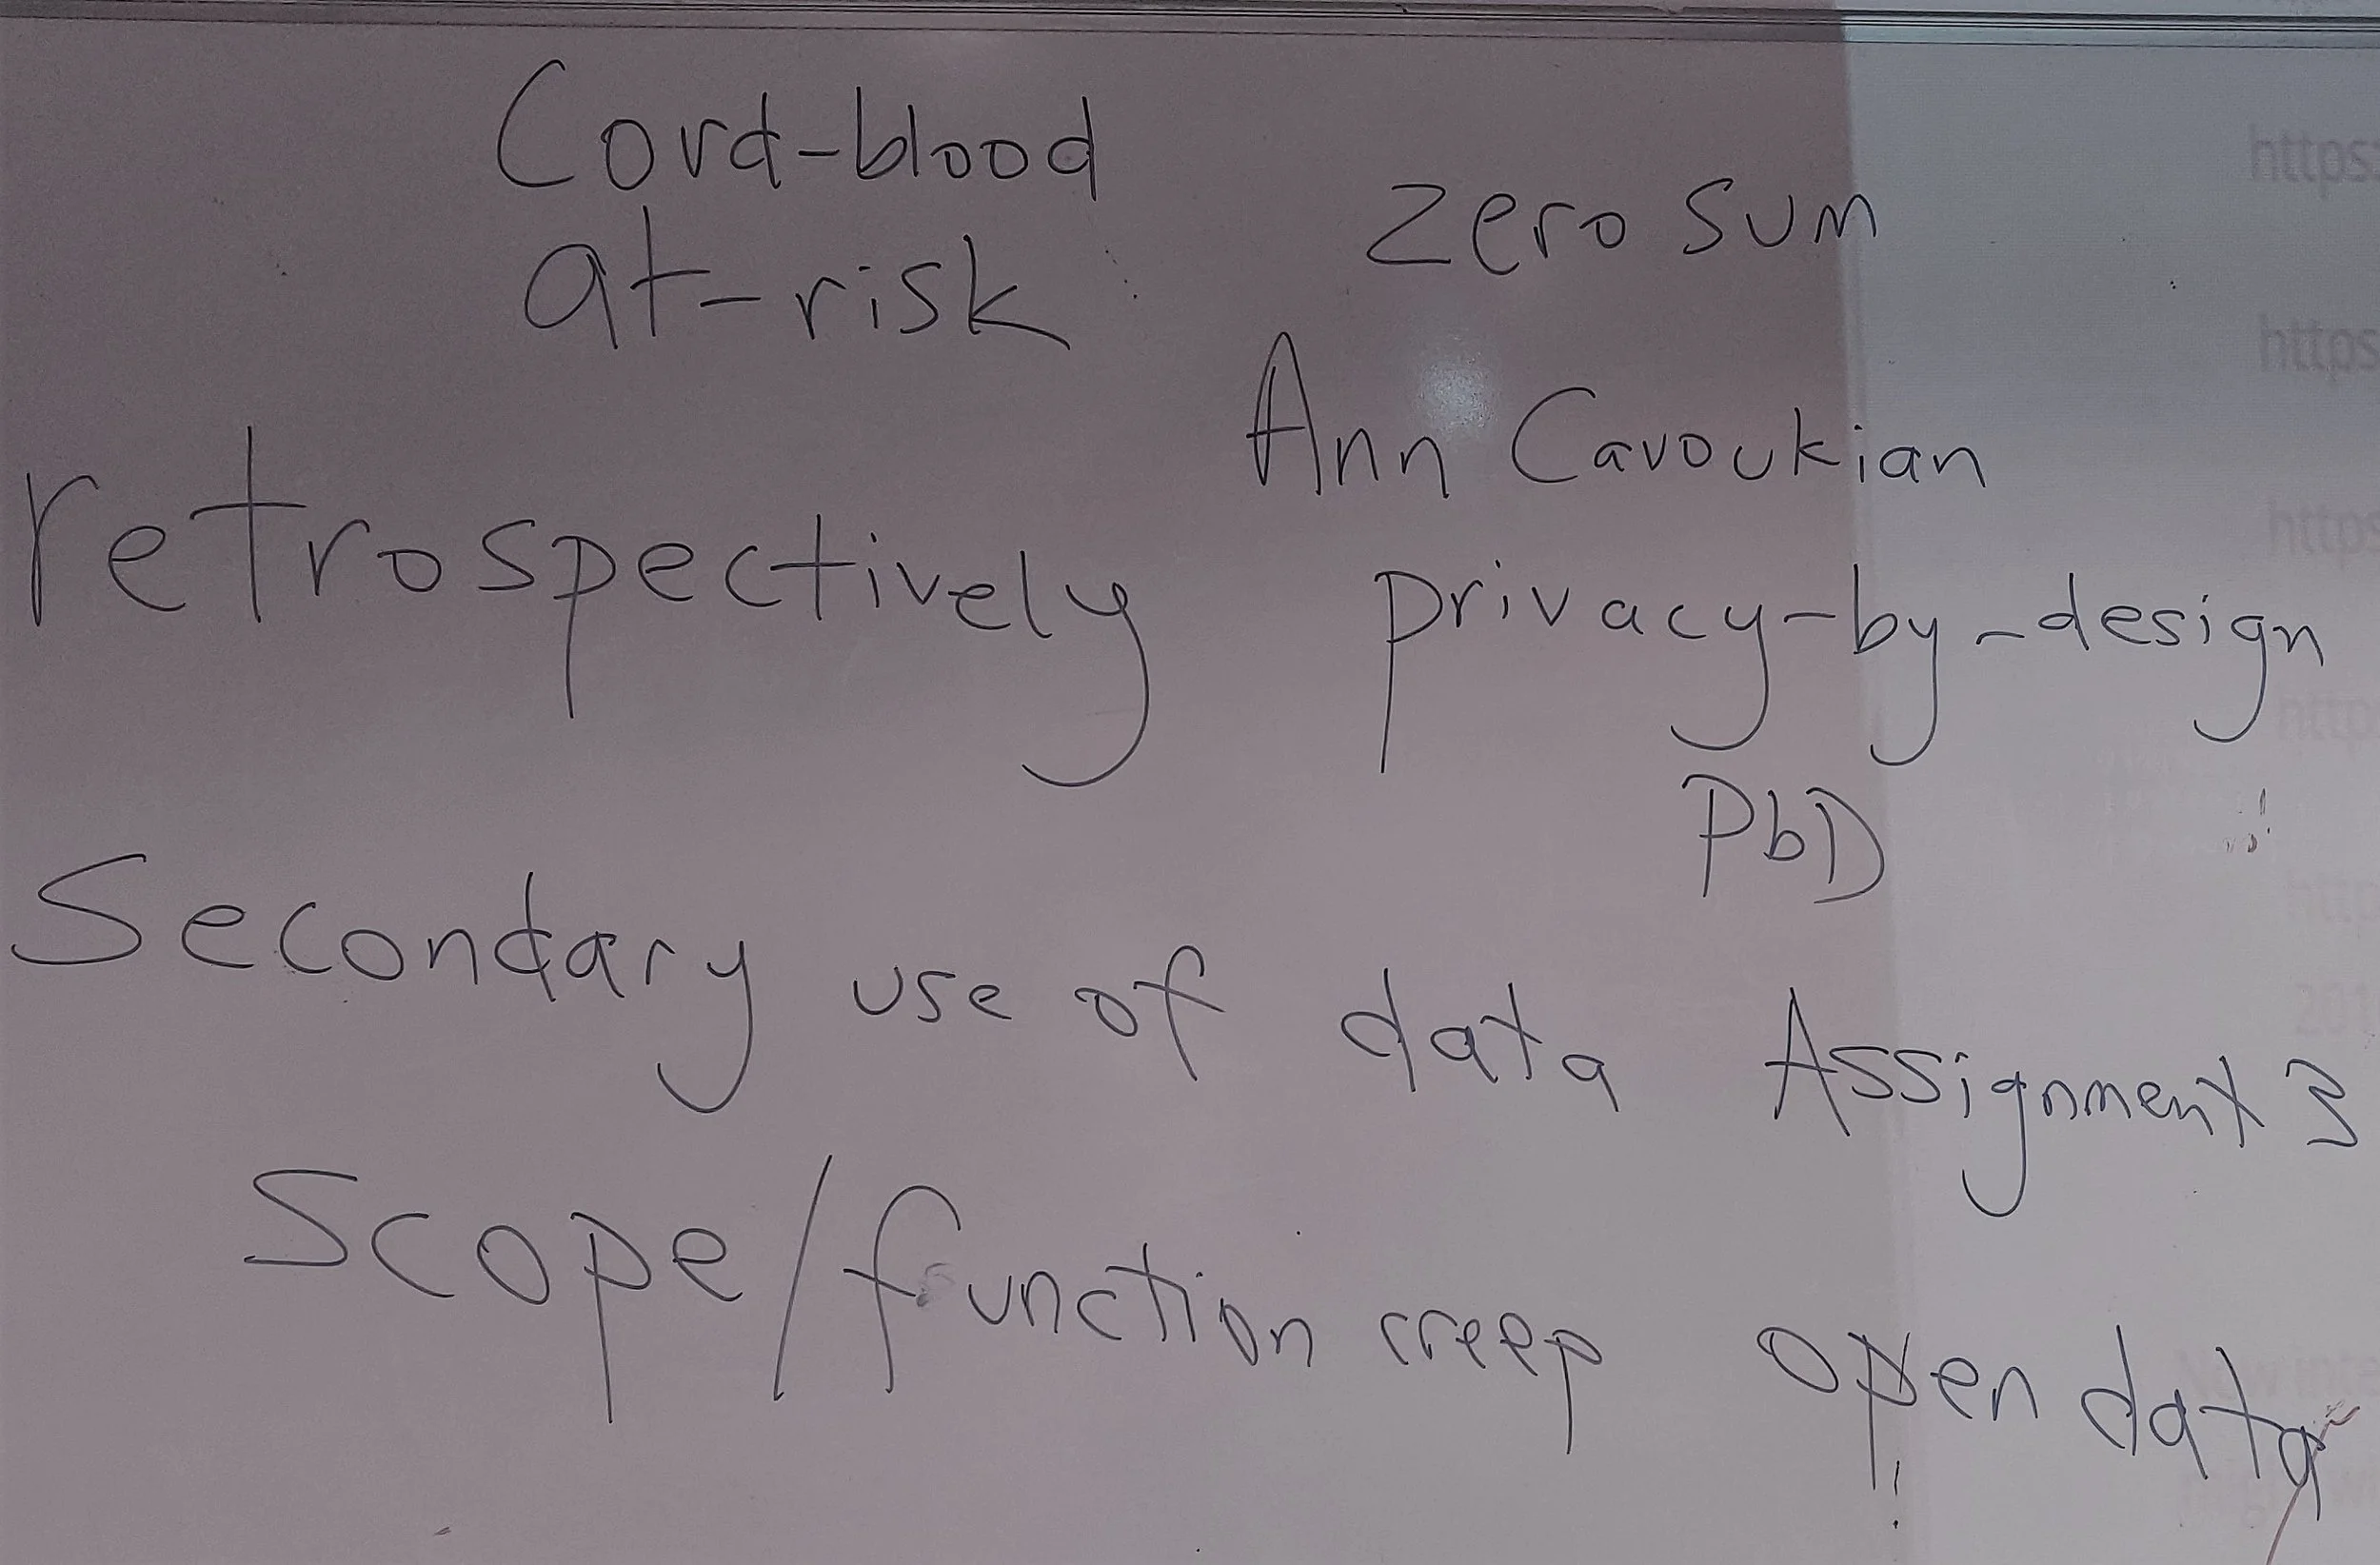 Cord-blood
at-risk
retrospectively
zero sum
Ann Cavoukian
privacy-by-design
PbD
Secondary use of data
Assignment 3
Scope/function creep
open data
https:
https
https
http
http
201